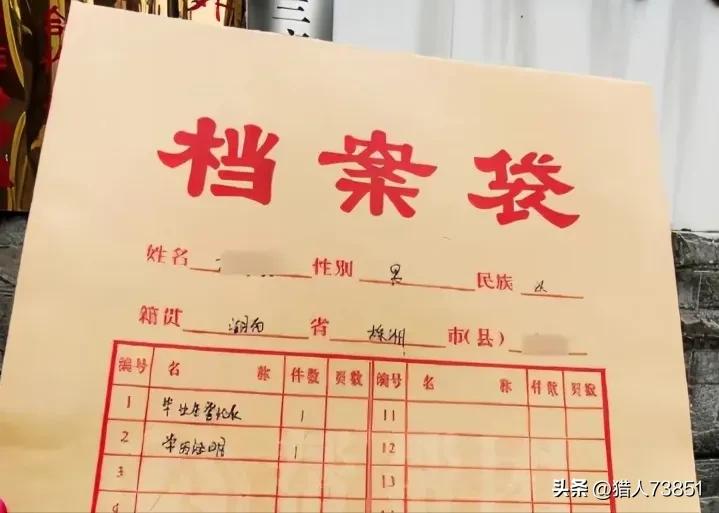 档案袋
姓名 性别 男 民族
籍贯 湖南 省 市(县)
编号 名称 件数 页数 编号 名称 件数 页数
1 毕业生登记表 1 11
2 学历证明 1 12
3 13
4
头条 @猎人73851